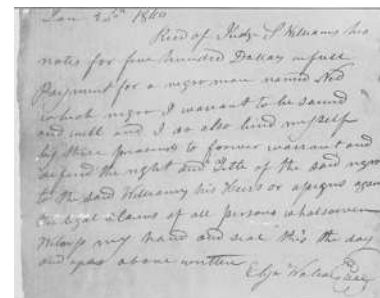 Jan 22nd 1840
Recd of Judge S Williams his
notes for five hundred Dollars in full
Payment for a negro man named Ned
which negro I warrant to be sound
and well and I do also bind myself
by these presents to forever warrant and
defend the right and Title of the said negro
to the said Williams his heirs or assigns against
the legal claims of all persons whatsoever
Witness my hand and seal this the day
and year above written